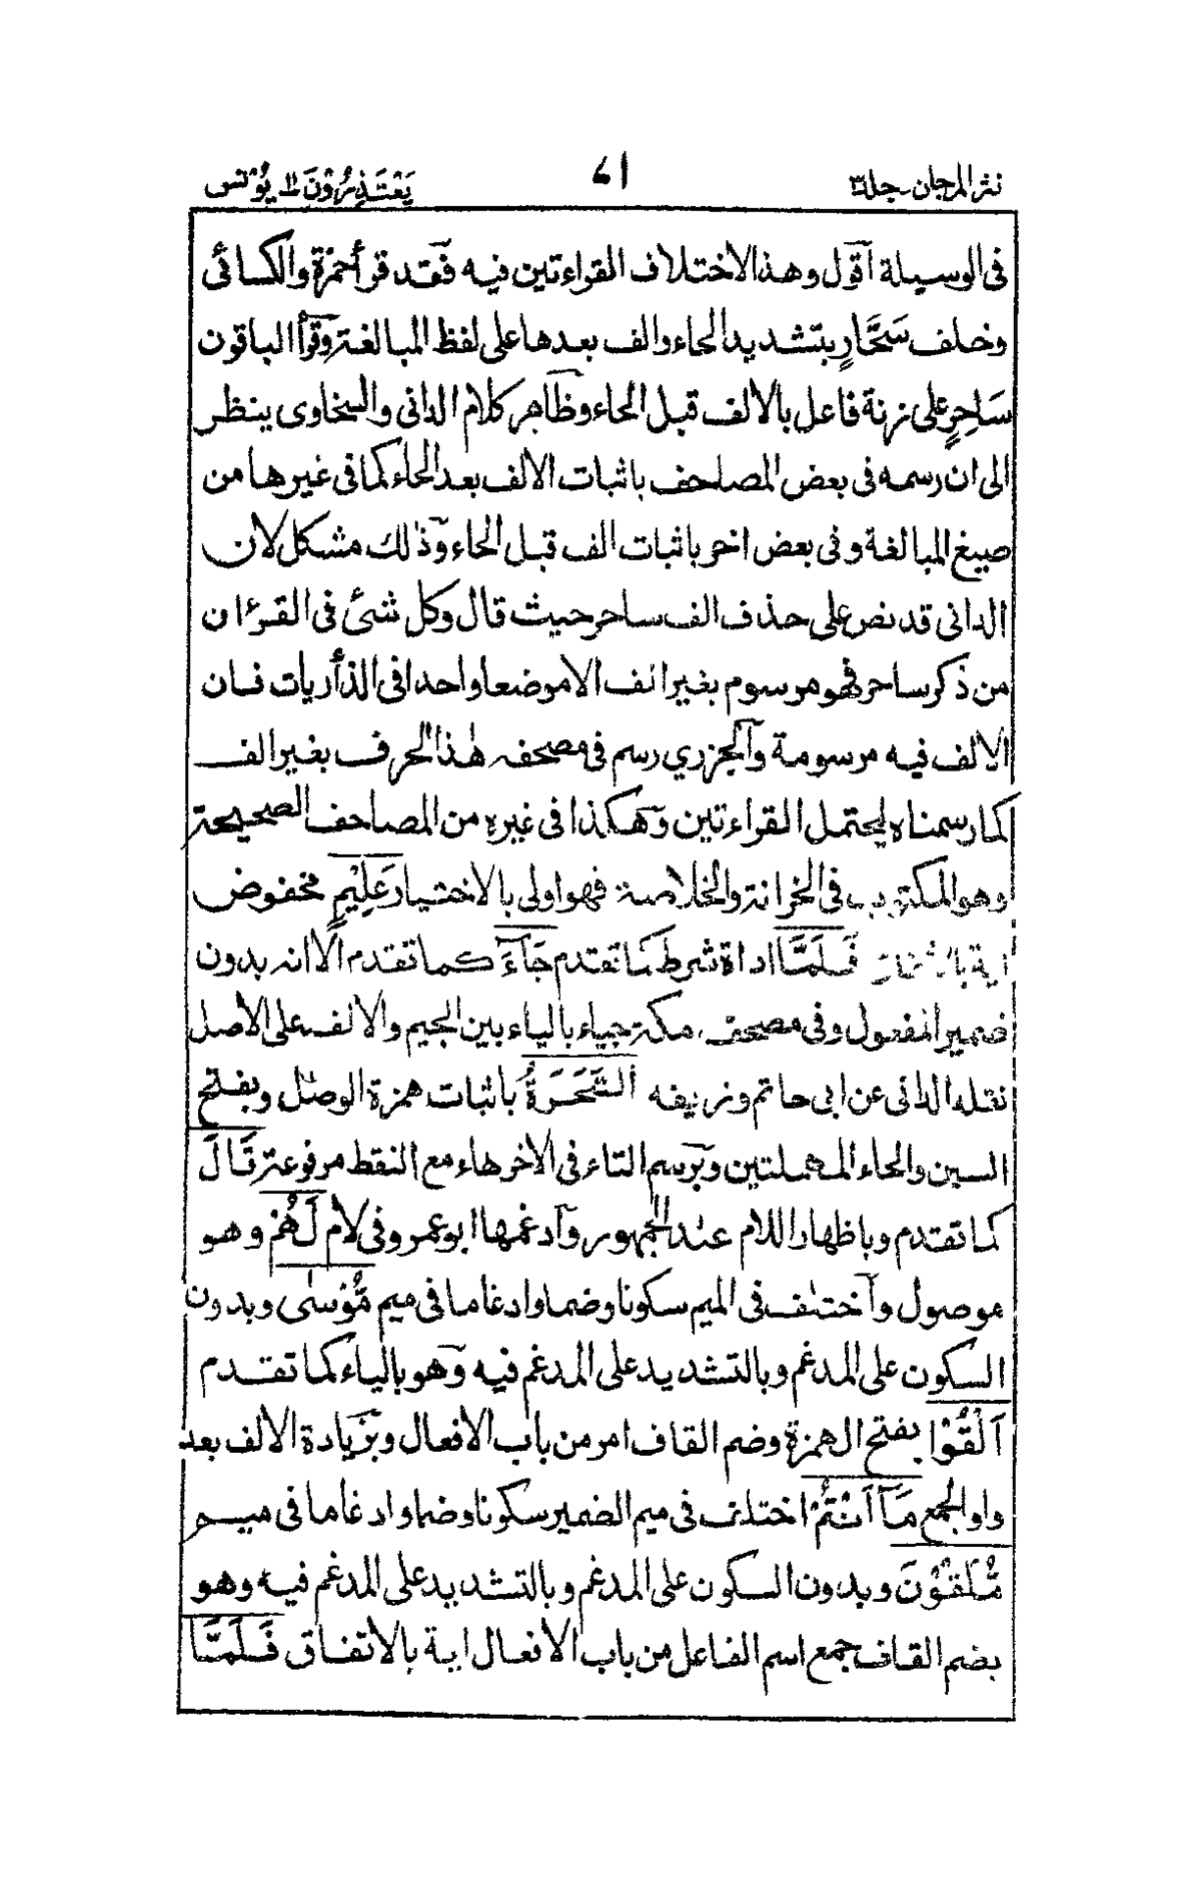 نثر المرجان ـ جلد ٣
٧١
يَعْتَذِرُوْنَ ١١ يُوْنس
فى الوسيلة اقول وهذا الاختلاف القراءتين فيه فقد قرأ حمزة والكسائى
وخلف سَحَّارٍ بتشديد الحاء والف بعدها على لفظ المبالغة وقرأ الباقون
سَاحِرٍ على زنة فاعل بالالف قبل الحاء وظاهر كلام الدانى والسخاوى ينظر
الى ان رسمه فى بعض المصاحف باثبات الالف بعد الحاء كما فى غيرها من
صيغ المبالغة وفى بعض اخر باثبات الف قبل الحاء وذٰلك مشكل لان
الدانى قد نص على حذف الف ساحر حيث قال وكل شئ فى القرءان
من ذكر ساحر فهو مرسوم بغير الف الا موضعا واحدا فى الذٰاريات فان
الالف فيه مرسومة والجزري رسم فى مصحفه هٰذا الحرف بغير الف
كما رسمناه ليحتمل القراءتين وهكذا فى غيره من المصاحف الصحيحة
وهو المكتوب فى الخزانة والخلاصة فهو اولى بالاختيار عَلِيْمٍ مخفوض
اية بالاتفاق فَلَمَّا اداة شرط كما تقدم جَآءَ كما تقدم الا انه بدون
ضمير المفعول وفى مصحف مكة جياء بالياء بين الجيم والالف على الاصل
نقله الدانى عن ابى حاتم وزيفه السَّحَرَةُ باثبات همزة الوصل وبفتح
السين والحاء المهملتين وبرسم التاء فى الاخر هاء مع النقط مرفوعة قَالَ
كما تقدم وباظهار اللام عند الجمهور وادغمها ابو عمرو فى لام لَهُمْ وهو
موصول واختلف فى الميم سكونا وضما وادغاما فى ميم مُّوْسٰى وبدون
السكون على المدغم وبالتشديد على المدغم فيه وهو بالياء كما تقدم
اَلْقُوْا بفتح الهمزة وضم القاف امر من باب الافعال وبزيادة الالف بعد
واو الجمع مَآ اَنْتُمْ اختلف فى ميم الضمير سكونا وضما وادغاما فى ميم
مُّلْقُوْنَ وبدون السكون على المدغم وبالتشديد على المدغم فيه وهو
بضم القاف جمع اسم الفاعل من باب الافعال اية بالاتفاق فَلَمَّا